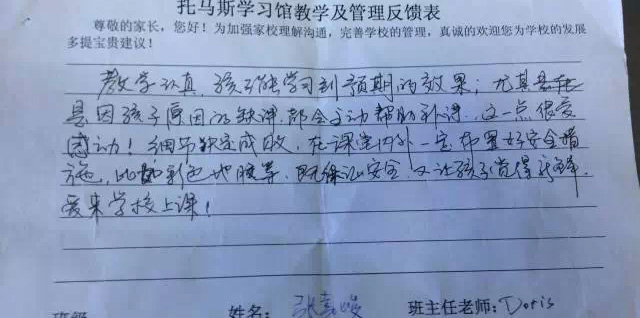 托马斯学习馆教学及管理反馈表
尊敬的家长，您好！为加强家校理解沟通，完善学校的管理，真诚的欢迎您为学校的发展
多提宝贵建议！
教学认真，孩子能学习到预期的效果；尤其
是因孩子原因的缺课，都会主动帮助补课，这一点很受
感动！细节决定成败，在课堂内外一定布置好安全措
施，比如彩色地胶等，既保证安全，又让孩子觉得新鲜，
爱来学校上课！
班级 姓名：张嘉 班主任老师：Doris